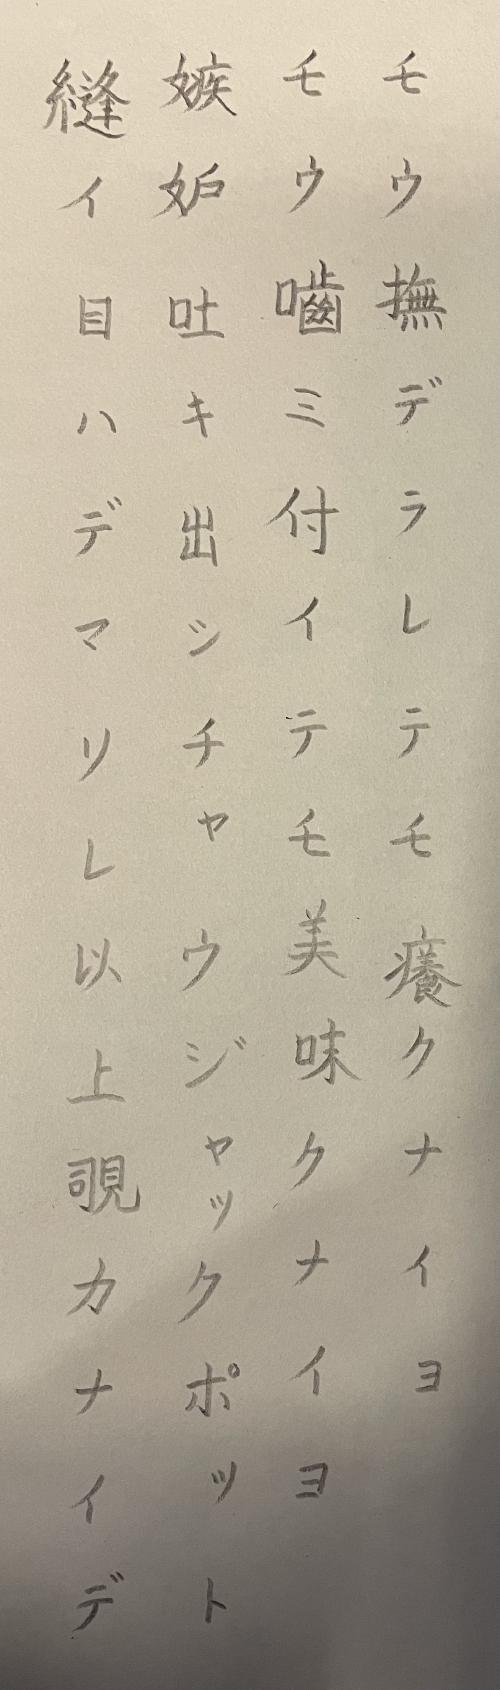 モウ撫デラレテモ癢クナイヨ
モウ嚙ミ付イテモ美味クナイヨ
嫉妒吐キ出シチャウジャックポット
縫イ目ハデマリレ以上覗カナイデ